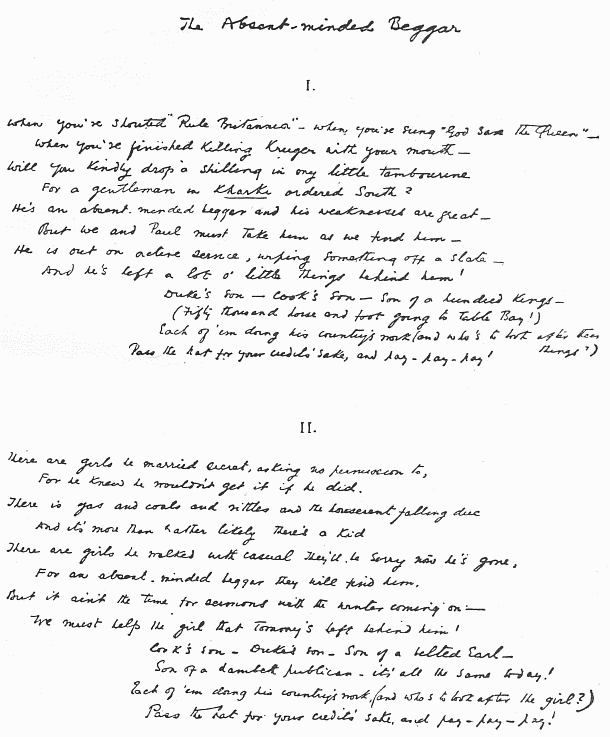 The Absent-minded Beggar
I.
When you've shouted "Rule Britannia" - when you've sung "God Save the Queen" -
When you've finished killing Kruger with your mouth -
Will you kindly drop a shilling in my little tambourine
For a gentleman in Kharki ordered South?
He's an absent-minded beggar and his weaknesses are great -
But we and Paul must take him as we find him -
He is out on active service, wiping something off a slate -
And he's left a lot o' little things behind him!
Duke's son - Cook's son - Son of a hundred Kings -
(Fifty thousand horse and foot going to Table Bay!)
Each of 'em doing his country's work (and who's to look after their
things?)
Pass the hat for your credit's sake, and pay - pay - pay!
II.
There are girls he married secret, asking no permission to,
For he knew he wouldn't get it if he did.
There is gas and coals and vittles and the houserent falling due
And it's more than rather likely there's a kid
There are girls he walked with casual they'll be sorry now he's gone,
For an absent-minded beggar they will find him.
But it ain't the time for sermons with the winter coming on -
We must help the girl that Tommy's left behind him!
Cook's son - Duke's son - Son of a belted Earl -
Son of a publican - it's all the same today!
Each of 'em doing his country's work, (and who's to look after the girl?)
Pass the hat for your credit's sake, and pay - pay - pay!